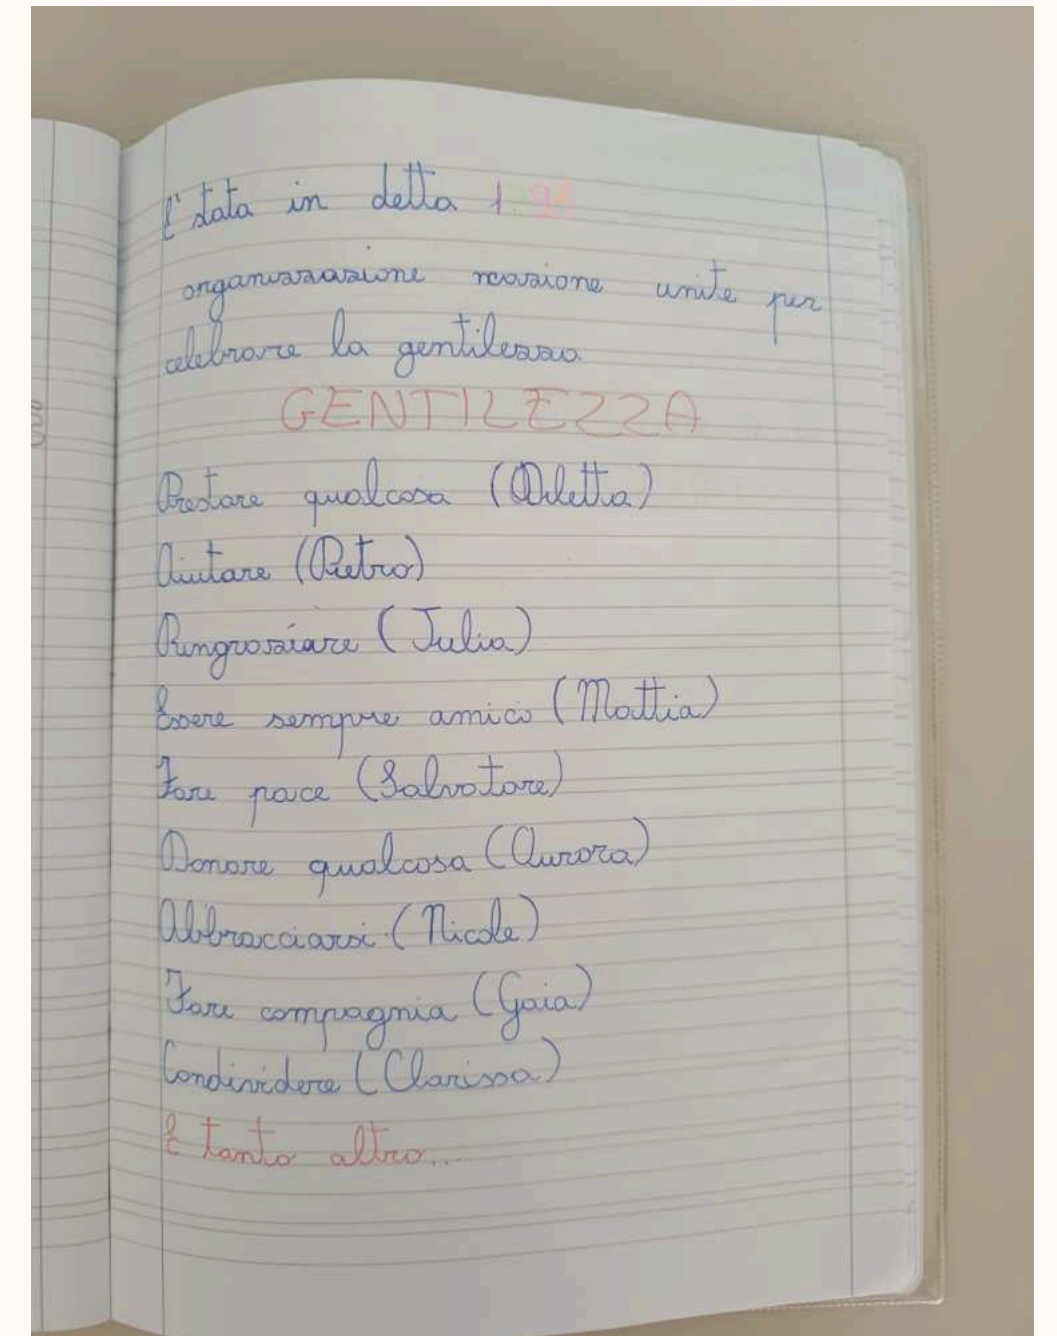 E' stata in detta 1.9
organizzazione nazione unite per
celebrare la gentilezza.
GENTILEZZA
Prestare qualcosa (Diletta)
Aiutare (Pietro)
Ringraziare (Julia)
Essere sempre amici (Mattia)
Fare pace (Salvatore)
Donare qualcosa (Aurora)
Abbracciarsi (Nicole)
Fare compagnia (Gaia)
Condividere (Clarissa)
E tanto altro...